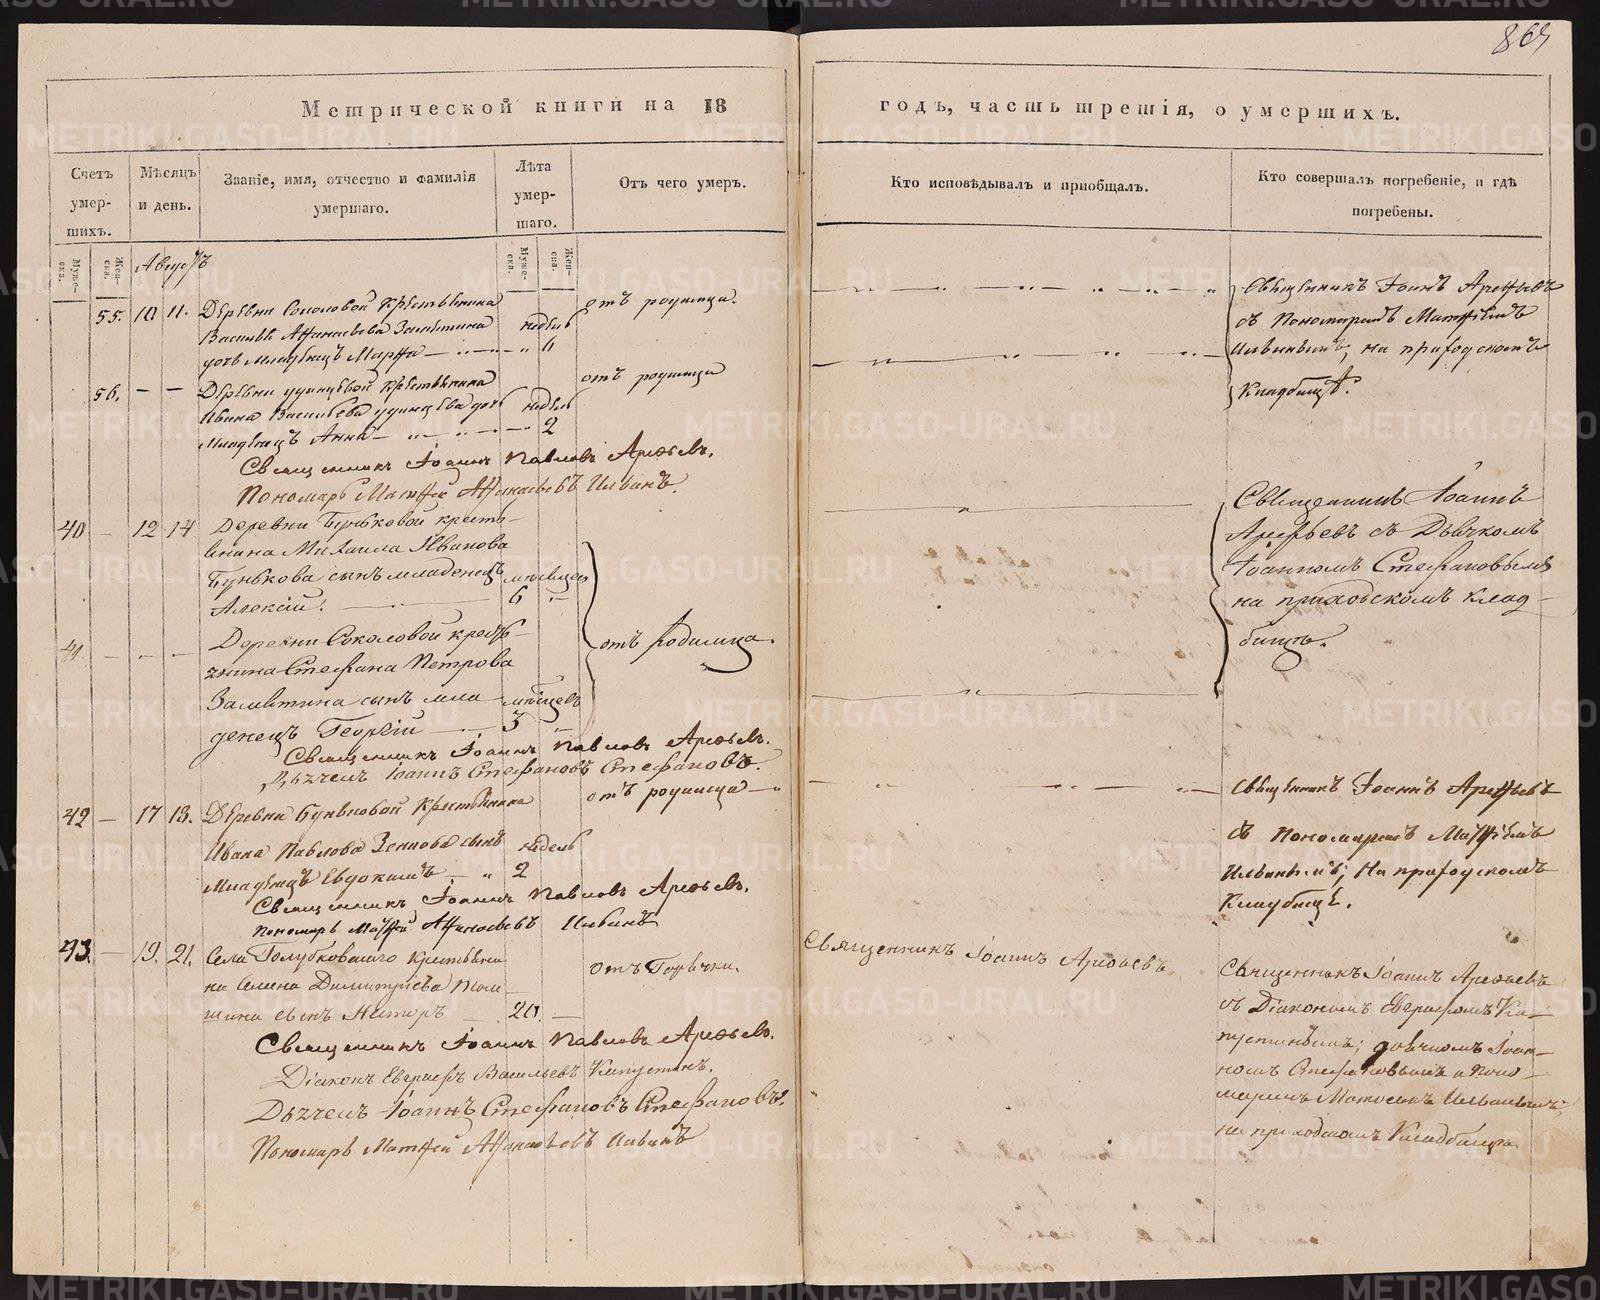 869
Метрической книги на 18
годъ, часть третія, о умершихъ.
Счетъ умер-шихъ.
Мѣсяцъ и день.
Званіе, имя, отчество и фамилія умершаго.
Лѣта умер-шаго.
Отъ чего умеръ.
Кто исповѣдывалъ и пріобщалъ.
Кто совершалъ погребеніе, и гдѣ погребены.
Муже-ска.
Жен-ска.
Муже-ска.
Жен-ска.
Августъ
55. 10 11. Деревни Соколовой крестьянина
Василья Афанасьева Замятина недель
дочь младенецъ Марфа 6
отъ родимца.
Священникъ Іоаннъ Арефьевъ
съ Пономаремъ Матфіемъ
Ильинымъ, на приходскомъ
кладбищѣ.
56. — — Деревни Удинцевой крестьянина
Ивана Васильева Удинцева дочь недель
младенецъ Анна 2
отъ родимца
Священникъ Іоаннъ Павловъ Арефьевъ.
Пономарь Матфей Афанасьевъ Ильинъ.
40 — 12 14 Деревни Буньковой кресть-
янина Михаила Иванова
Бунькова сынъ младенецъ мѣсяцев
Алексій. 6
Священникъ Іоаннъ
Арефьевъ съ Дьячкомъ
Іоанномъ Стефановымъ
на приходскомъ клад-
бищѣ.
41 — — — Деревни Соколовой кресть-
янина Стефана Петрова
Замятина сынъ мла- мѣсяцев
денецъ Георгій 3
отъ родимца.
Священникъ Іоаннъ Павловъ Арефьевъ.
Дьячекъ Іоаннъ Стефановъ Стефановъ.
42 — 17 18. Деревни Буньковой крестьянина
Ивана Павлова Зенкова сынъ недель
младенецъ Евдокимъ 2
отъ родимца
Священникъ Іоаннъ Арефьевъ
съ пономаремъ Матфіемъ
Ильинымъ; на приходскомъ
кладбищѣ.
Священникъ Іоаннъ Павловъ Арефьевъ.
Пономарь Матфей Афанасьевъ Ильинъ
43. — 19. 21. Села Голубковскаго крестьяни-
на Семена Димитріева
сынъ Несторъ 20.
отъ Горячки.
Священникъ Іоаннъ Арефьевъ
Священникъ Іоаннъ Арефьевъ
съ Діакономъ Еверафомъ Ка-
пустинымъ; дьячкомъ Іоан-
номъ Стефановымъ и поно-
маремъ Матфеемъ Ильинымъ;
на приходскомъ Кладбищѣ
Священникъ Іоаннъ Павловъ Арефьевъ.
Діаконъ Еверафъ Васильевъ Капустинъ.
Дьячекъ Іоаннъ Стефановъ Стефановъ.
Пономарь Матфей Афанасьевъ Ильинъ
METRIKI.GASO-URAL.RU